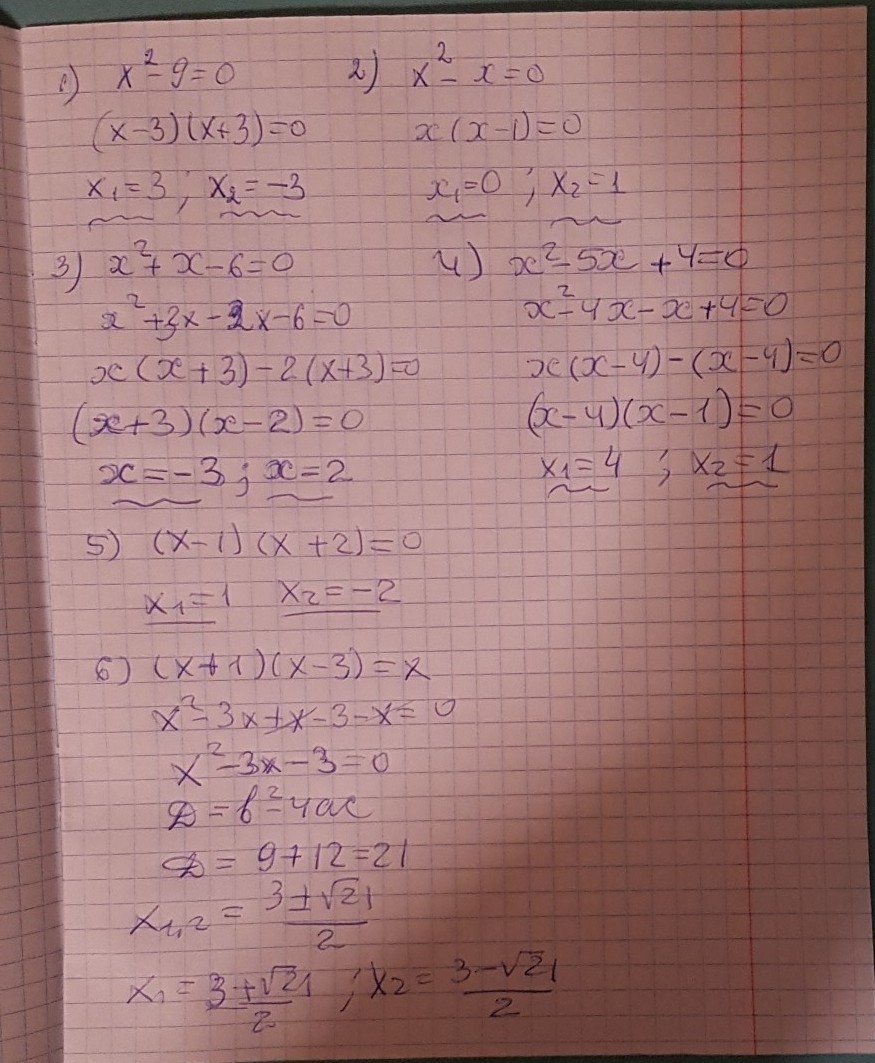 1) x²-9=0
(x-3)(x+3)=0
x₁=3 ; x₂=-3
2) x²-x=0
x(x-1)=0
x₁=0 ; x₂=1
3) x²+x-6=0
x²+3x-2x-6=0
x(x+3)-2(x+3)=0
(x+3)(x-2)=0
x=-3 ; x=2
4) x²-5x+4=0
x²-4x-x+4=0
x(x-4)-(x-4)=0
(x-4)(x-1)=0
x₁=4 ; x₂=1
5) (x-1)(x+2)=0
x₁=1 x₂=-2
6) (x+1)(x-3)=x
x²-3x+x-3-x=0
x²-3x-3=0
Д=b²-4ac
Д=9+12=21
x₁,₂ = (3±√21)/2
x₁ = (3+√21)/2 ; x₂ = (3-√21)/2